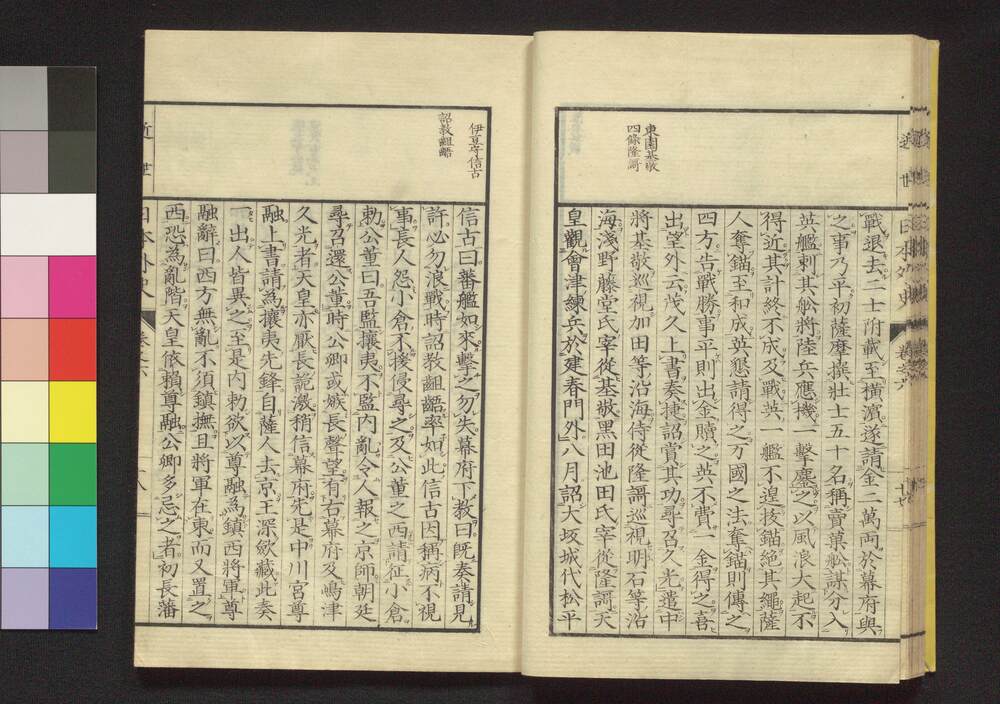 東園基敬
四條隆謌
戰退去二士附載至橫濱遂請金二萬兩於幕府與
之事乃平初薩摩撰壯士五十名稱賣菓舩謀分入
英艦刺其舩將陸兵應機一擊塵之以風浪大起不
得近其計終不成及戰英一艦不遑拔錨絕其繩薩
人奪錨至和成英懇請得之万國之法奪錨則傳之
四方告戰勝事平則出金贖之英不費一金得之吾
出望外云茂久上書奏捷詔賞其功尋召久光遣中
將基敬巡視加田等沿海侍從隆謌巡視明石等沿
海淺野藤堂氏宰從基敬黑田池田氏宰從隆謌天
皇觀會津練兵於建春門外八月詔大坂城代松平
伊豆守信古
詔敕齟齬
信古曰蕃艦如來擊之勿失幕府下教曰既奏請見
許必勿浪戰時詔教齟齬率如此信古因稱病不視
事長人怨小倉不援侵尋之及公董之西請征小倉
勅公董曰吾監攘夷不監內亂令人報之京師朝廷
尋召還公董時公卿或嫉長聲望有右幕府及嶋津
久光者天皇亦厭長詭激稍信幕府先是中川宮尊
融上書請為攘夷先鋒自薩人去京王深歛藏此奏
一出人皆異之至是內勅欲以尊融為鎮西將軍尊
融辭曰西方無亂不須鎮撫且將軍在東而又置之
西恐為亂階天皇依賴尊融公卿多忌之者初長藩
近世
日本外史